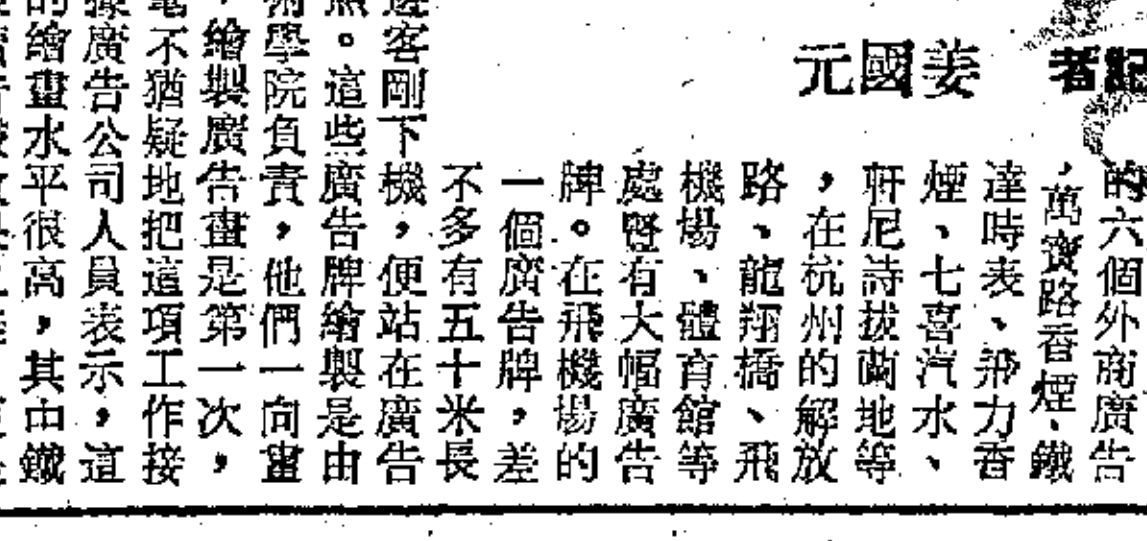 記者 姜國元
的六個外商廣告
，萬寶路香煙、鐵
達時表、飛力香
煙、七喜汽水、
軒尼詩拔蘭地等
，在杭州的解放
路、龍翔橋、飛
機場、體育館等
處豎有大幅廣告
牌。在飛機場的
一個廣告牌，差
不多有五十米長
客剛下機，便站在廣告
照。這些廣告牌繪製是由
術學院負責，他們一向畫
，繪製廣告畫是第一次，
毫不猶疑地把這項工作接
據廣告公司人員表示，這
的繪畫水平很高，其中鐵